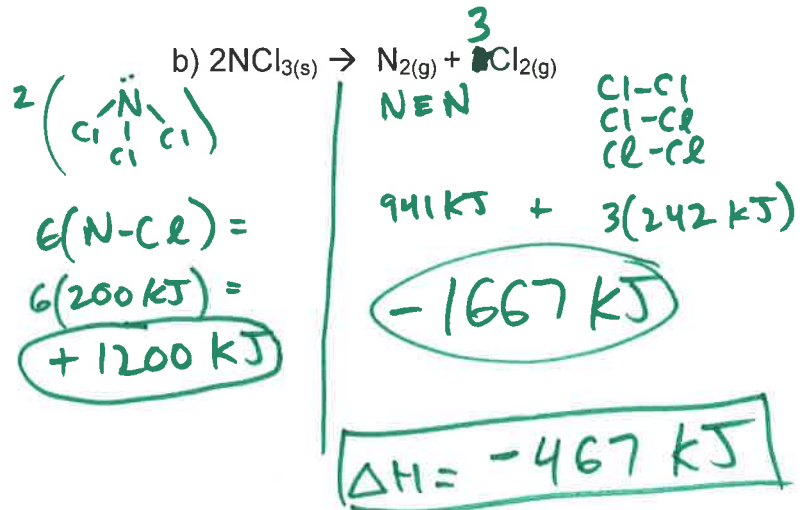 3
b) 2NCl₃(s) → N₂(g) + Cl₂(g)
2 ( N̈ Cl Cl Cl )
6(N-Cl) =
6(200 kJ) =
+1200 kJ
N≡N
Cl-Cl
Cl-Cl
Cl-Cl
941 kJ + 3(242 kJ)
-1667 kJ
ΔH= -467 kJ